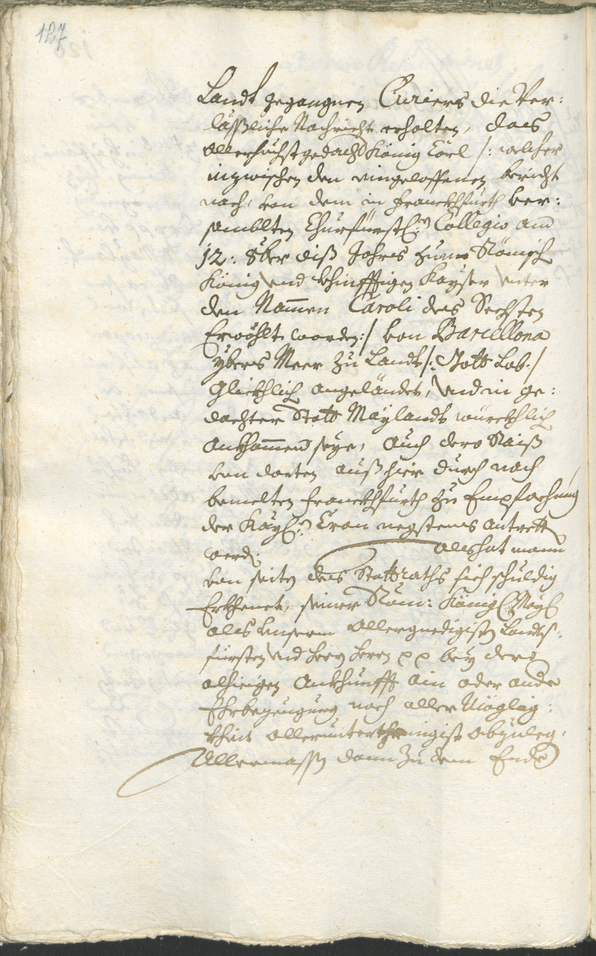 127
Landt gegangnen Curiers die Ver:
läßliche Nachricht erhalten, dass
Allerhöchstgedacht König Carl /: welcher
inzwischen den eingeloffenen bericht
nach, von dem in Franckhfurth ver:
samblten Churfürstl: Collegio am
12: 8ber diß Jahrs zum Römisch
König und khünfftigen Kayser unter
den Nammen Caroli des Sechsten
Erwöhlt worden:/ von Barcellona
ybers Meer zu Landt /: Gott Lob :/
Glickhlich angeländet, und in ge:
dachter Statt Maylandt würckhlich
Ankhommen seye, auch dero Raiß
von dorten auß hier durch nach
bemelten Franckhfurth zu Empfachung
der Kayl: Cron negstens antretten
werde:
Als hat mann
von seiten des Stattraths sich schuldig
Erkhenet, seiner Röm: König: May:
als unserem Allergnedigisten Landts:
fürsten und Herrn Herrn pp bey dero
alhieigen Ankhunfft ain oder ander
Ehrbezeugung nach aller Möglig:
kheit allerunterthenigist abzuleg:
Allermassen dann zu dem Ende